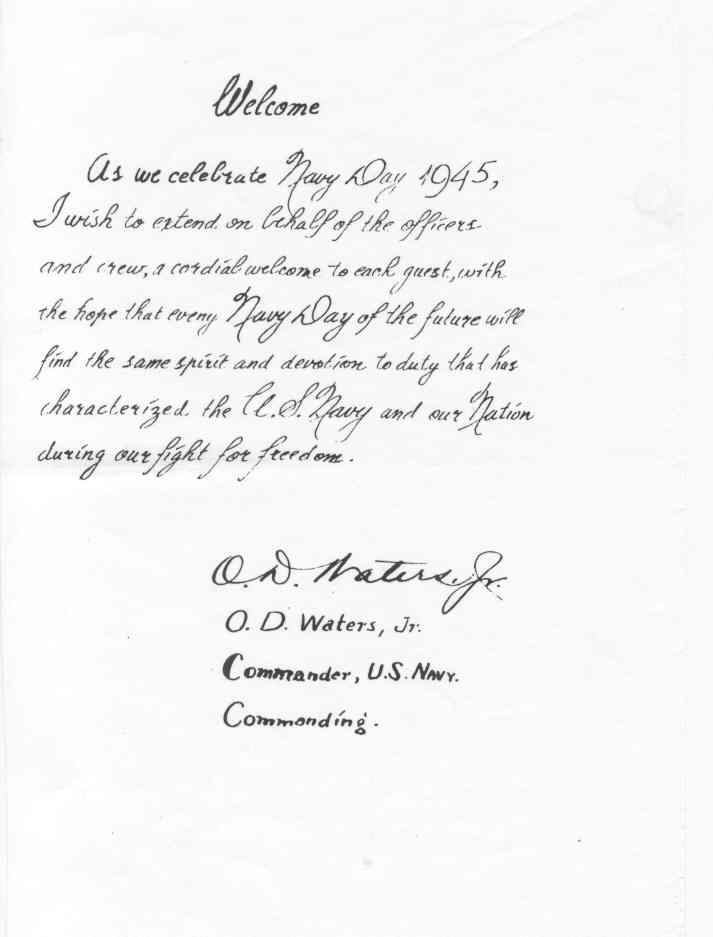 Welcome
As we celebrate Navy Day 1945,
I wish to extend on behalf of the officers
and crew, a cordial welcome to each guest, with
the hope that every Navy Day of the future will
find the same spirit and devotion to duty that has
characterized the U.S. Navy and our Nation
during our fight for freedom.
O. D. Waters, Jr.
O. D. Waters, Jr.
Commander, U.S. Navy.
Commanding.